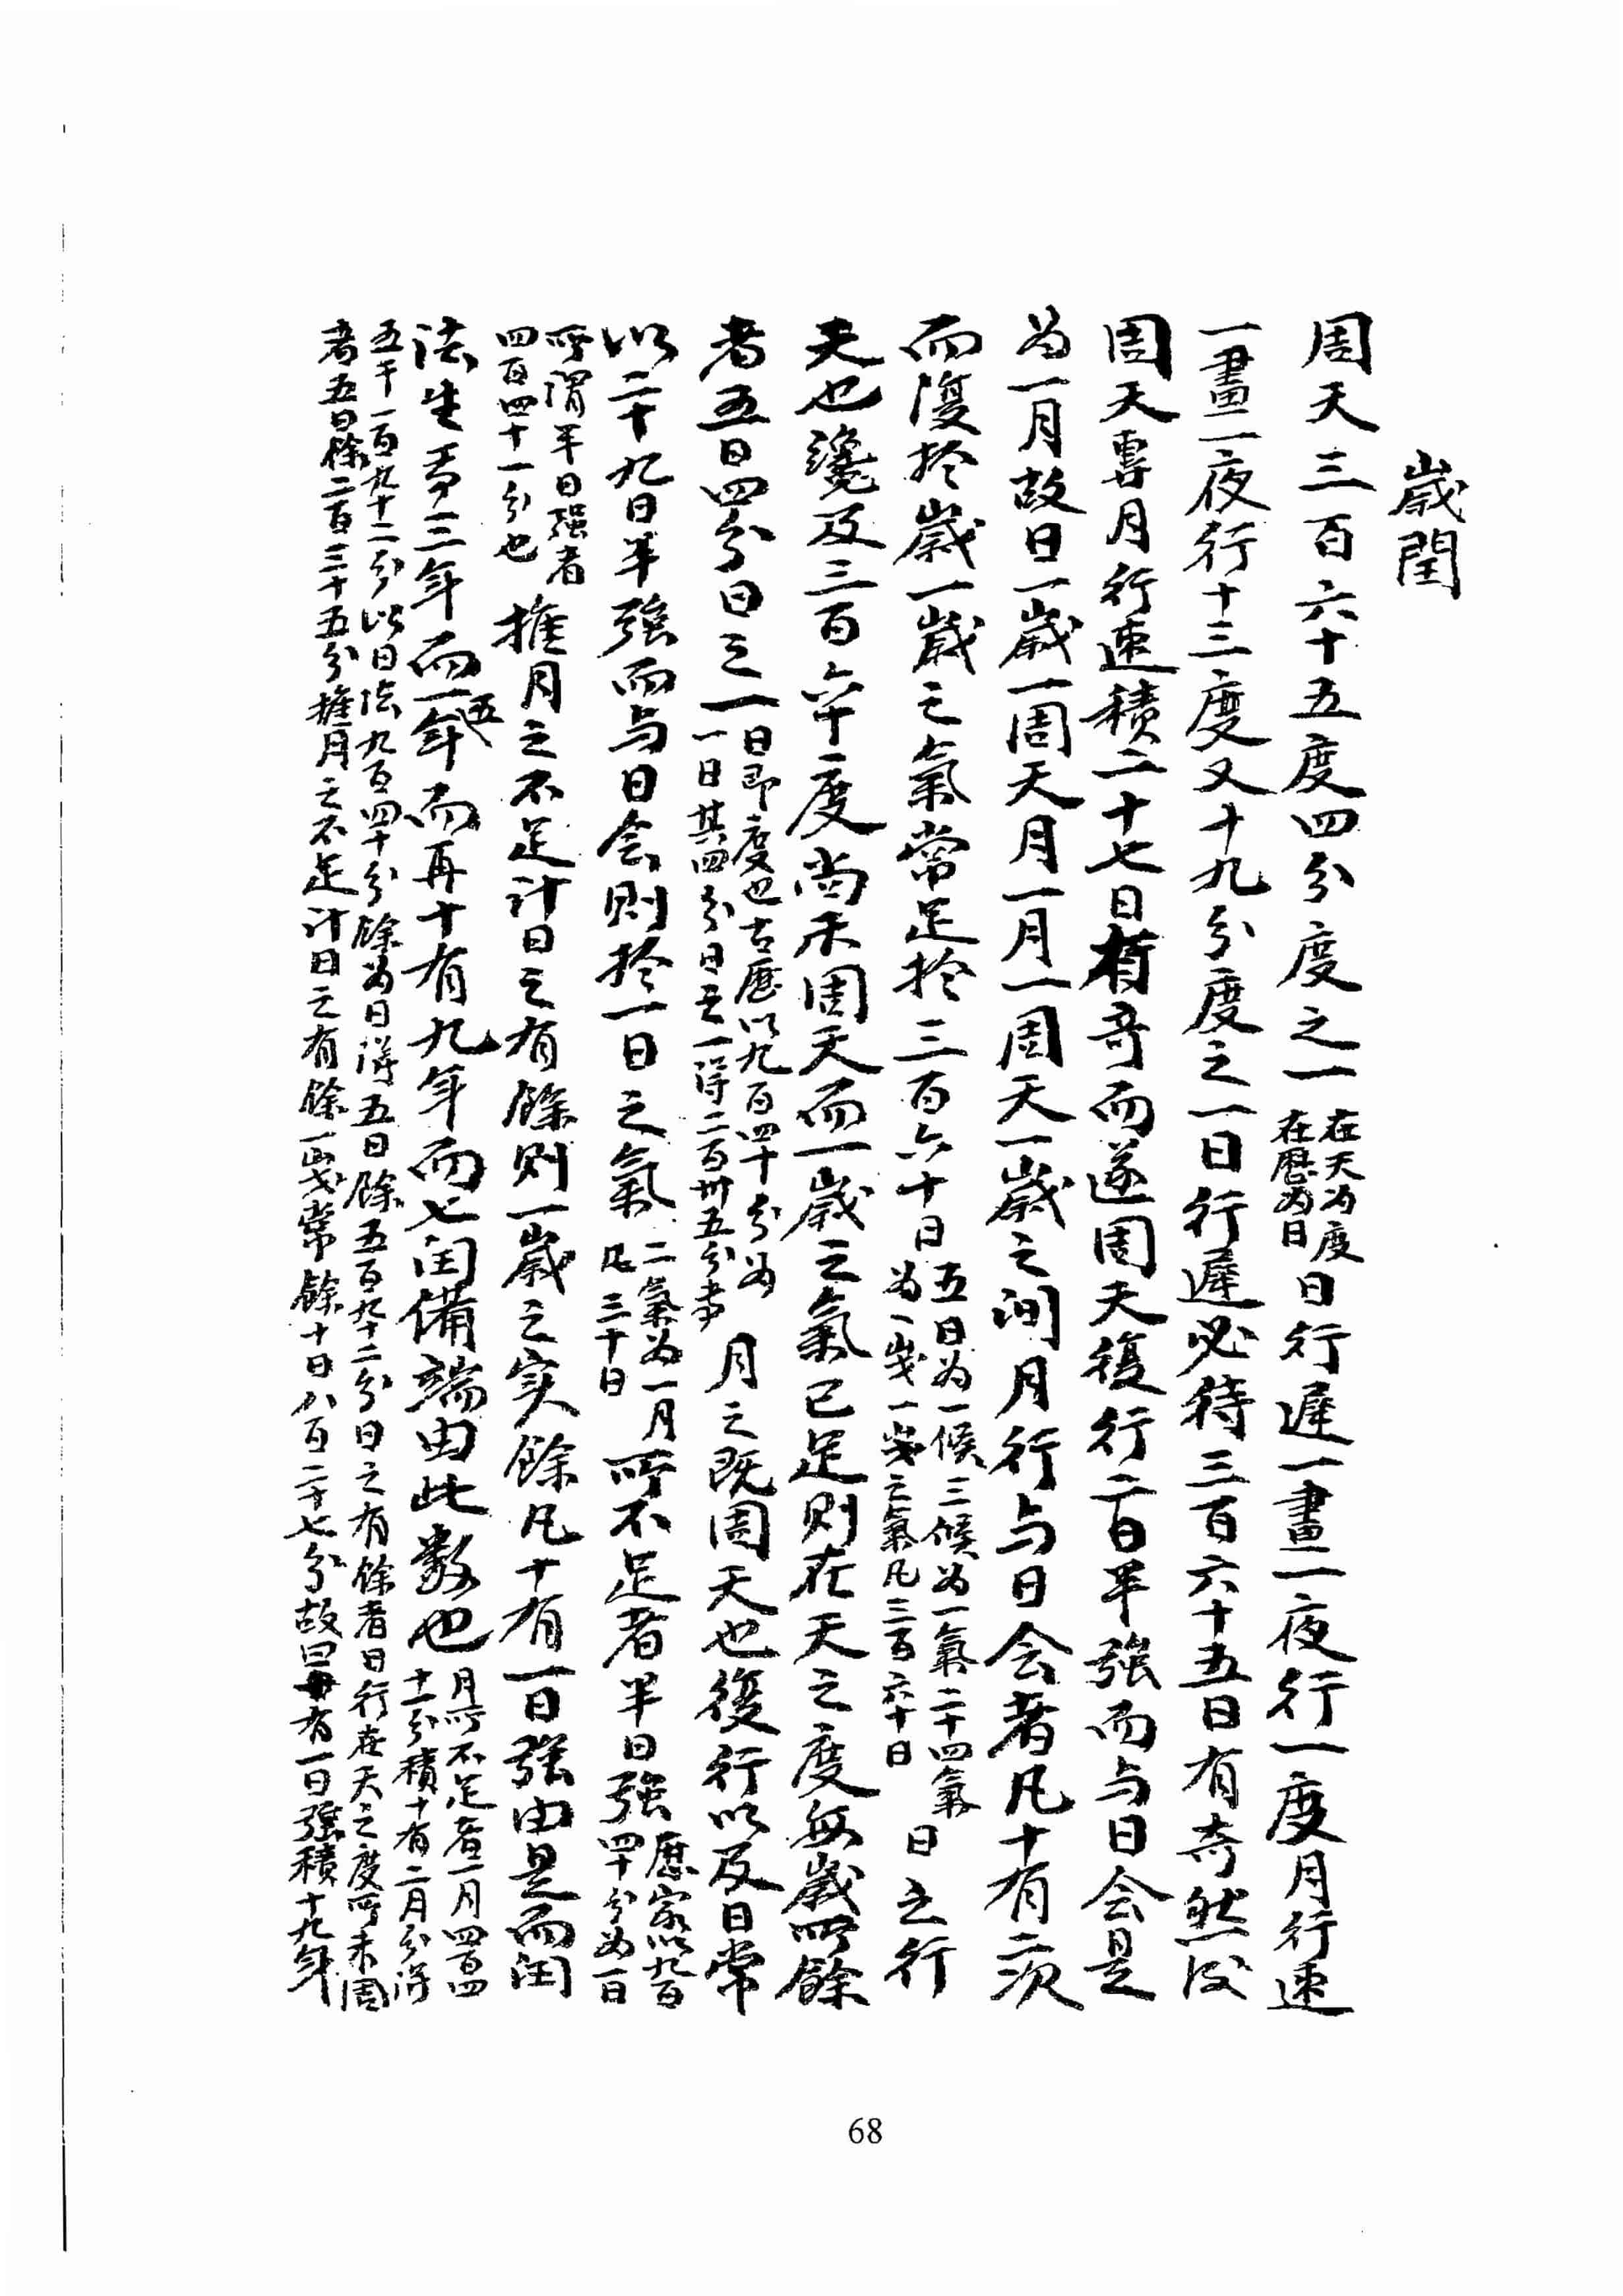 歳閏
周天三百六十五度四分度之一在天为度在暦为日日行遲一晝一夜行一度月行速
一晝一夜行十三度又十九分度之一日行遲必待三百六十五日有奇然後
周天月行速積二十七日有奇而遂周天復行二日半強而与日会是
为一月故日一歳一周天月一月一周天一歳之间月行与日会者凡十有二次
而復於歳一歳之氣常足於三百六十日五日为一候三候为一氣二十四氣为一歳一歳之氣凡三百六十日日之行
天也纔及三百六十度尚未周天而一歳之氣已足則在天之度每歳所餘
者五日四分日之一日即度也古暦以九百四十分为一日其四分日之一得二百卅五分月之既周天也復行以及日常
以二十九日半強而与日会則於一日之氣二氣为一月凡三十日所不足者半日強暦家以九百四十分为一日
所謂半日強者四百四十一分也推月之不足計日之有餘則一歳之实餘凡十有一日強由是而闰
法生焉三年而一五年而再十有九年而七闰備端由此数也月所不足者一月四百四十一分積十有二月分得
五千一百九十二分以日法九百四十分除为日得五日餘五百九十二分日之有餘者日行在天之度所未周
者五日餘二百三十五分推月之不足計日之有餘一歳常餘十日八百二十七分故曰有一日強積十九年
68